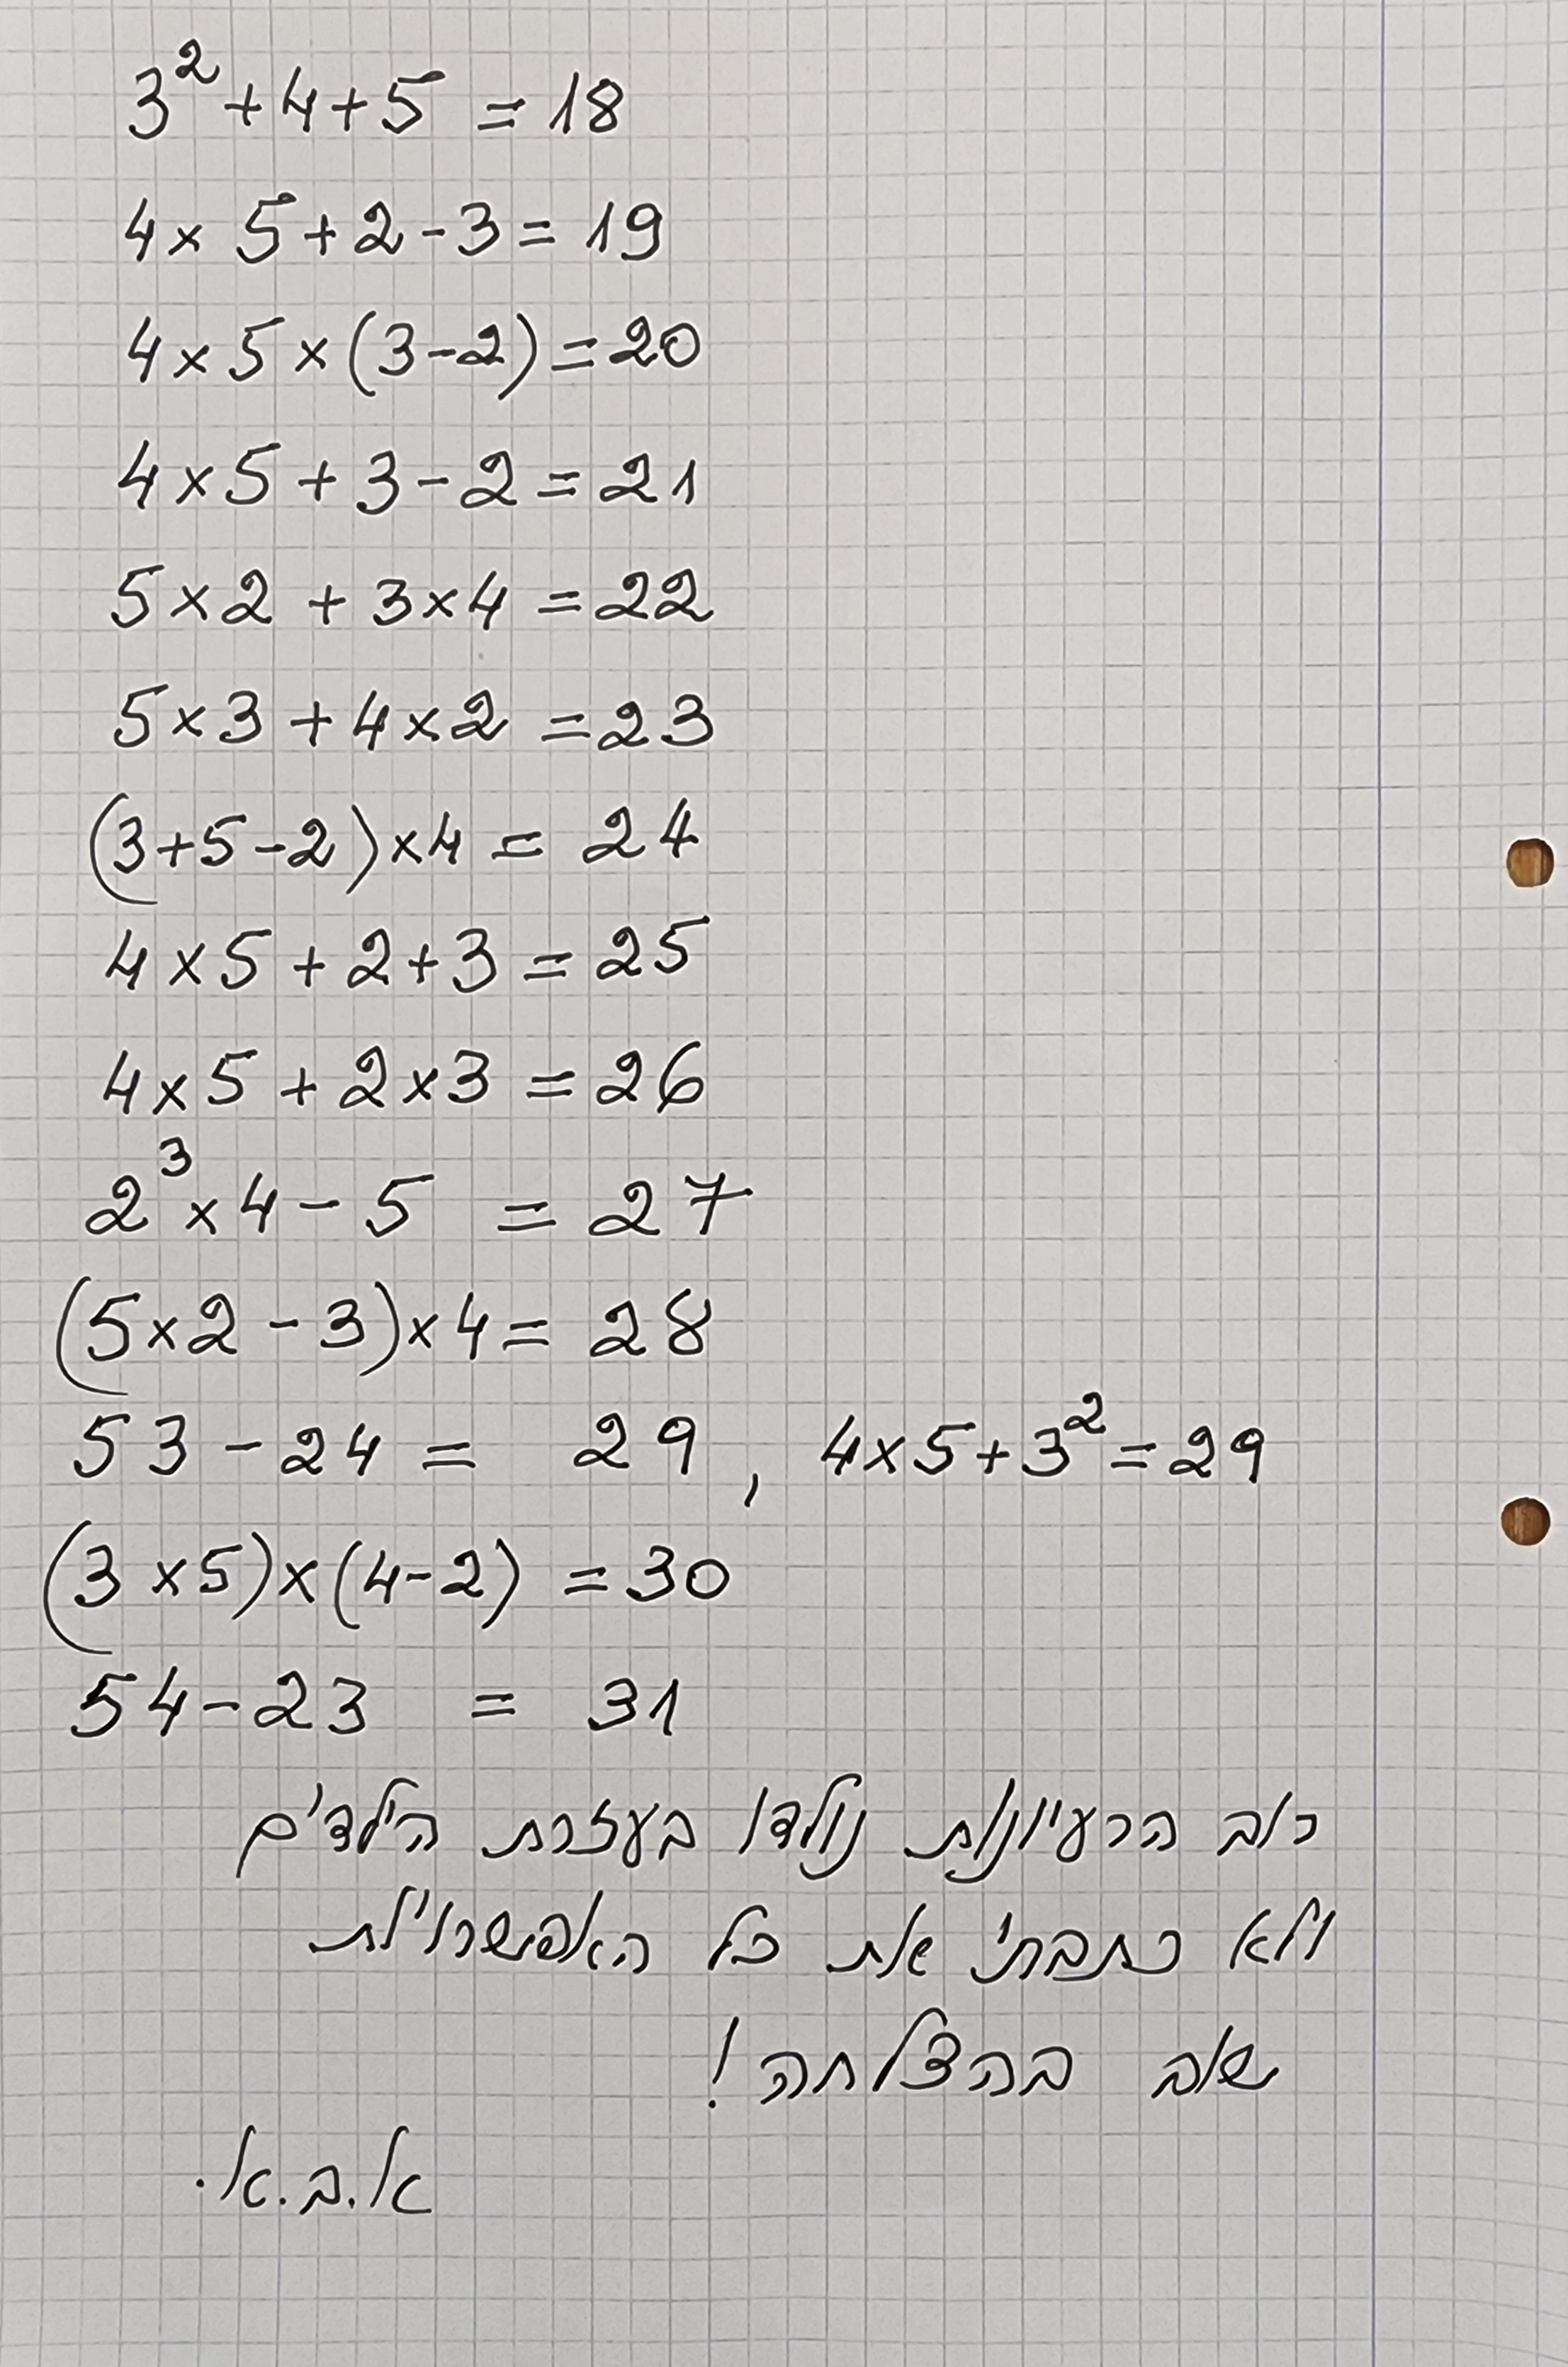 3² + 4 + 5 = 18
4 × 5 + 2 - 3 = 19
4 × 5 × (3 - 2) = 20
4 × 5 + 3 - 2 = 21
5 × 2 + 3 × 4 = 22
5 × 3 + 4 × 2 = 23
(3 + 5 - 2) × 4 = 24
4 × 5 + 2 + 3 = 25
4 × 5 + 2 × 3 = 26
2³ × 4 - 5 = 27
(5 × 2 - 3) × 4 = 28
53 - 24 = 29, 4 × 5 + 3² = 29
(3 × 5) × (4 - 2) = 30
54 - 23 = 31
רוב הרעיונות נולדו בעזרת הילדים
ולא כתבתי את כל האפשרויות
שוב בהצלחה!
א.ב.א.